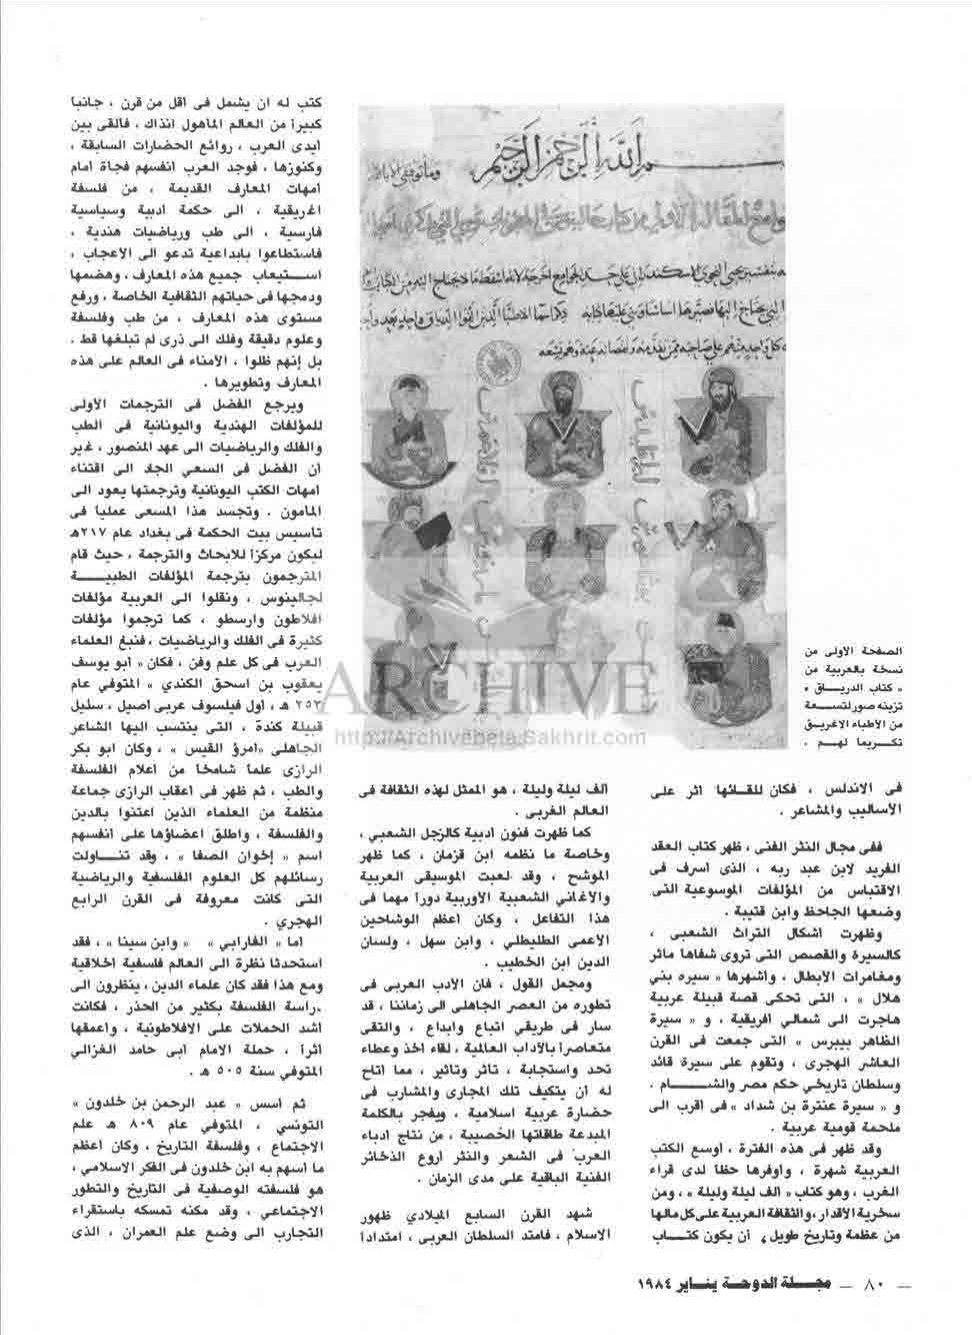 الصفحة الأولى من
نسخة بالعربية من
« كتاب الدرياق »
تزينه صور لتسعة
من الأطباء الاغريق
تكريما لهم .
فى الاندلس ، فكان للقائها اثر على
الأساليب والمشاعر .
ففى مجال النثر الفنى ، ظهر كتاب العقد
الفريد لابن عبد ربه ، الذى اسرف فى
الاقتباس من المؤلفات الموسوعية التى
وضعها الجاحظ وابن قتيبة .
وظهرت اشكال التراث الشعبى ،
كالسيرة والقصص التى تروى شفاها مآثر
ومغامرات الأبطال ، واشهرها « سيره بني
هلال » ، التى تحكى قصة قبيلة عربية
هاجرت الى شمالي افريقية ، و « سيرة
الظاهر بيبرس » التى جمعت فى القرن
العاشر الهجرى ، وتقوم على سيرة قائد
وسلطان تاريخي حكم مصر والشام .
و « سيرة عنترة بن شداد » فى اقرب الى
ملحمة قومية عربية .
وقد ظهر فى هذه الفترة ، اوسع الكتب
العربية شهرة ، واوفرها حظا لدى قراء
الغرب ، وهو كتاب « الف ليلة وليلة » ، ومن
سخرية الأقدار ، والثقافة العربية على كل مالها
من عظمة وتاريخ طويل ، أن يكون كتاب
الف ليلة وليلة ، هو الممثل لهذه الثقافة فى
العالم الغربى .
كما ظهرت فنون ادبية كالزجل الشعبي ،
وخاصة ما نظمه ابن قزمان ، كما ظهر
الموشح ، وقد لعبت الموسيقى العربية
والأغاني الشعبية الأوربية دورا مهما فى
هذا التفاعل ، وكان أعظم الوشاحين
الأعمى الطليطلي ، وابن سهل ، ولسان
الدين ابن الخطيب .
ومجمل القول ، فان الأدب العربى فى
تطوره من العصر الجاهلى الى زماننا ، قد
سار فى طريقي اتباع وابداع ، والتقى
متعاصرا بالآداب العالمية ، لقاء اخذ وعطاء
تحد واستجابة ، تأثر وتأثير ، مما اتاح
له ان يتكيف تلك المجارى والمشارب فى
حضارة عربية اسلامية ، ويفجر بالكلمة
المبدعة طاقاتها الخصبية ، من نتاج ادباء
العرب فى الشعر والنثر اروع الذخائر
الفنية الباقية على مدى الزمان .
شهد القرن السابع الميلادي ظهور
الاسلام ، فامتد السلطان العربى ، امتدادا
كتب له ان يشمل فى اقل من قرن ، جانبا
كبيرا من العالم المأهول انذاك ، فألقى بين
ايدى العرب ، روائع الحضارات السابقة ،
وكنوزها ، فوجد العرب انفسهم فجأة امام
أمهات المعارف القديمة ، من فلسفة
اغريقية ، الى حكمة ادبية وسياسية
فارسية ، الى طب ورياضيات هندية ،
فاستطاعوا بابداعية تدعو الى الاعجاب ،
استيعاب جميع هذه المعارف ، وهضمها
ودمجها فى حياتهم الثقافية الخاصة ، ورفع
مستوى هذه المعارف ، من طب وفلسفة
وعلوم دقيقة وفلك الى ذرى لم تبلغها قط .
بل إنهم ظلوا ، الأمناء فى العالم على هذه
المعارف وتطويرها .
ويرجع الفضل فى الترجمات الأولى
للمؤلفات الهندية واليونانية فى الطب
والفلك والرياضيات الى عهد المنصور ، غير
أن الفضل فى السعي الجاد الى اقتناء
امهات الكتب اليونانية وترجمتها يعود الى
المأمون . وتجسد هذا المسعى عمليا فى
تأسيس بيت الحكمة فى بغداد عام ٢١٧هـ
ليكون مركزا للأبحاث والترجمة ، حيث قام
المترجمون بترجمة المؤلفات الطبيــة
لجالينوس ، ونقلوا الى العربية مؤلفات
افلاطون وارسطو ، كما ترجموا مؤلفات
كثيرة فى الفلك والرياضيات ، فنبغ العلماء
العرب فى كل علم وفن ، فكان « أبو يوسف
يعقوب بن اسحق الكندي » المتوفي عام
٢٥٢ هـ ، أول فيلسوف عربى أصيل ، سليل
قبيلة كندة ، التى ينتسب اليها الشاعر
الجاهلى « امرؤ القيس » ، وكان ابو بكر
الرازى علما شامخا من أعلام الفلسفة
والطب ، ثم ظهر فى اعقاب الرازى جماعة
منظمة من العلماء الذين اعتنوا بالدين
والفلسفة ، واطلق اعضاؤها على انفسهم
اسم « إخوان الصفا » ، وقد تناولت
رسائلهم كل العلوم الفلسفية والرياضية
التى كانت معروفة فى القرن الرابع
الهجري .
اما « الفارابي » « وابن سينا » ، فقد
استحدثا نظرة الى العالم فلسفية اخلاقية
ومع هذا فقد كان علماء الدين ، ينظرون الى
دراسة الفلسفة بكثير من الحذر ، فكانت
أشد الحملات على الافلاطونية ، واعمقها
أثرا ، حملة الامام ابى حامد الغزالي
المتوفي سنة ٥٠٥ هـ .
ثم اسس « عبد الرحمن بن خلدون »
التونسي ، المتوفي عام ٨٠٩ هـ علم
الاجتماع ، وفلسفة التاريخ ، وكان اعظم
ما اسهم به ابن خلدون فى الفكر الاسلامي ،
هو فلسفته الوصفية فى التاريخ والتطور
الاجتماعي ، وقد مكنه تمسكه باستقراء
التجارب الى وضع علم العمران ، الذى
ARCHIVE
http://Archivebeta.Sakhrit.com
— ٨٠ — مجلة الدوحة يناير ١٩٨٤